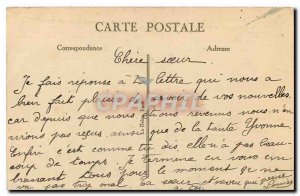 CARTE POSTALE
Correspondance
Adresse
Chère sœur
Je fais réponse à ta lettre qui nous a
bien fait plaisir de vos nouvelles
car depuis que nous revenus nous n'en
avions pas reçus, ainsi que de la haute
Enfin c'est comme tu dis elle n'a pas beau-
de temps. Je termine en vous em-
brassant tous pour le moment ça ne
va pas trop mal. Ta sœur et neveu